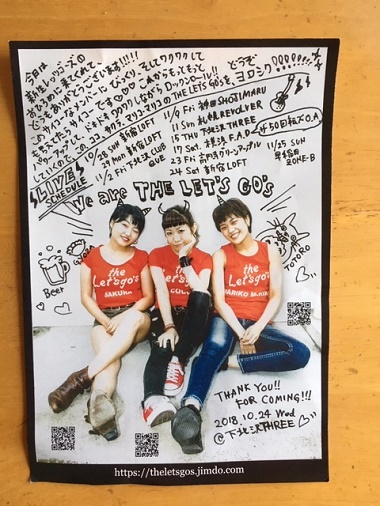 今日は
新生レッツゴーズの
おひろめに来てくれて、
どうもありがとうございます!!!!!
このサイコーなメンバーに びっくり、そしてワクワクして
もらえたら、サイコーです♡♡♡ これからもっともっと
パワーアップして、ドキドキワクワクしながら ロックンロール!!
していくので、このココ、サクラ、マリコマリコの THE LET'S GO'Sを、
どうぞ
ヨロシク!!!!!!!!!
LIVE
SCHEDULE
10/28 SUN 新宿LOFT
29 Mon 新宿LOFT
11/2 Fri 下北沢CLUB
QUE
11/9 Fri 神田SHOJIMARU
11 Sun 札幌REVOLVER
15 THU 下北沢THREE
17 Sat 横浜F.A.D
23 Fri
24 Sat 新宿LOFT
50回転ズO.A
11/25 SUN
早稲田
ZONE-B
We are THE LET'S GO's
Beer
TOTORO
the
Let'sgo's
SAKURA
the
Let'sgo's
COCO
the
Let'sgo's
MARIKO MARIKO
THANK YOU!!
FOR COMING!!!
2018.10.24 Wed
@下北沢THREE
https://theletsgos.jimdo.com